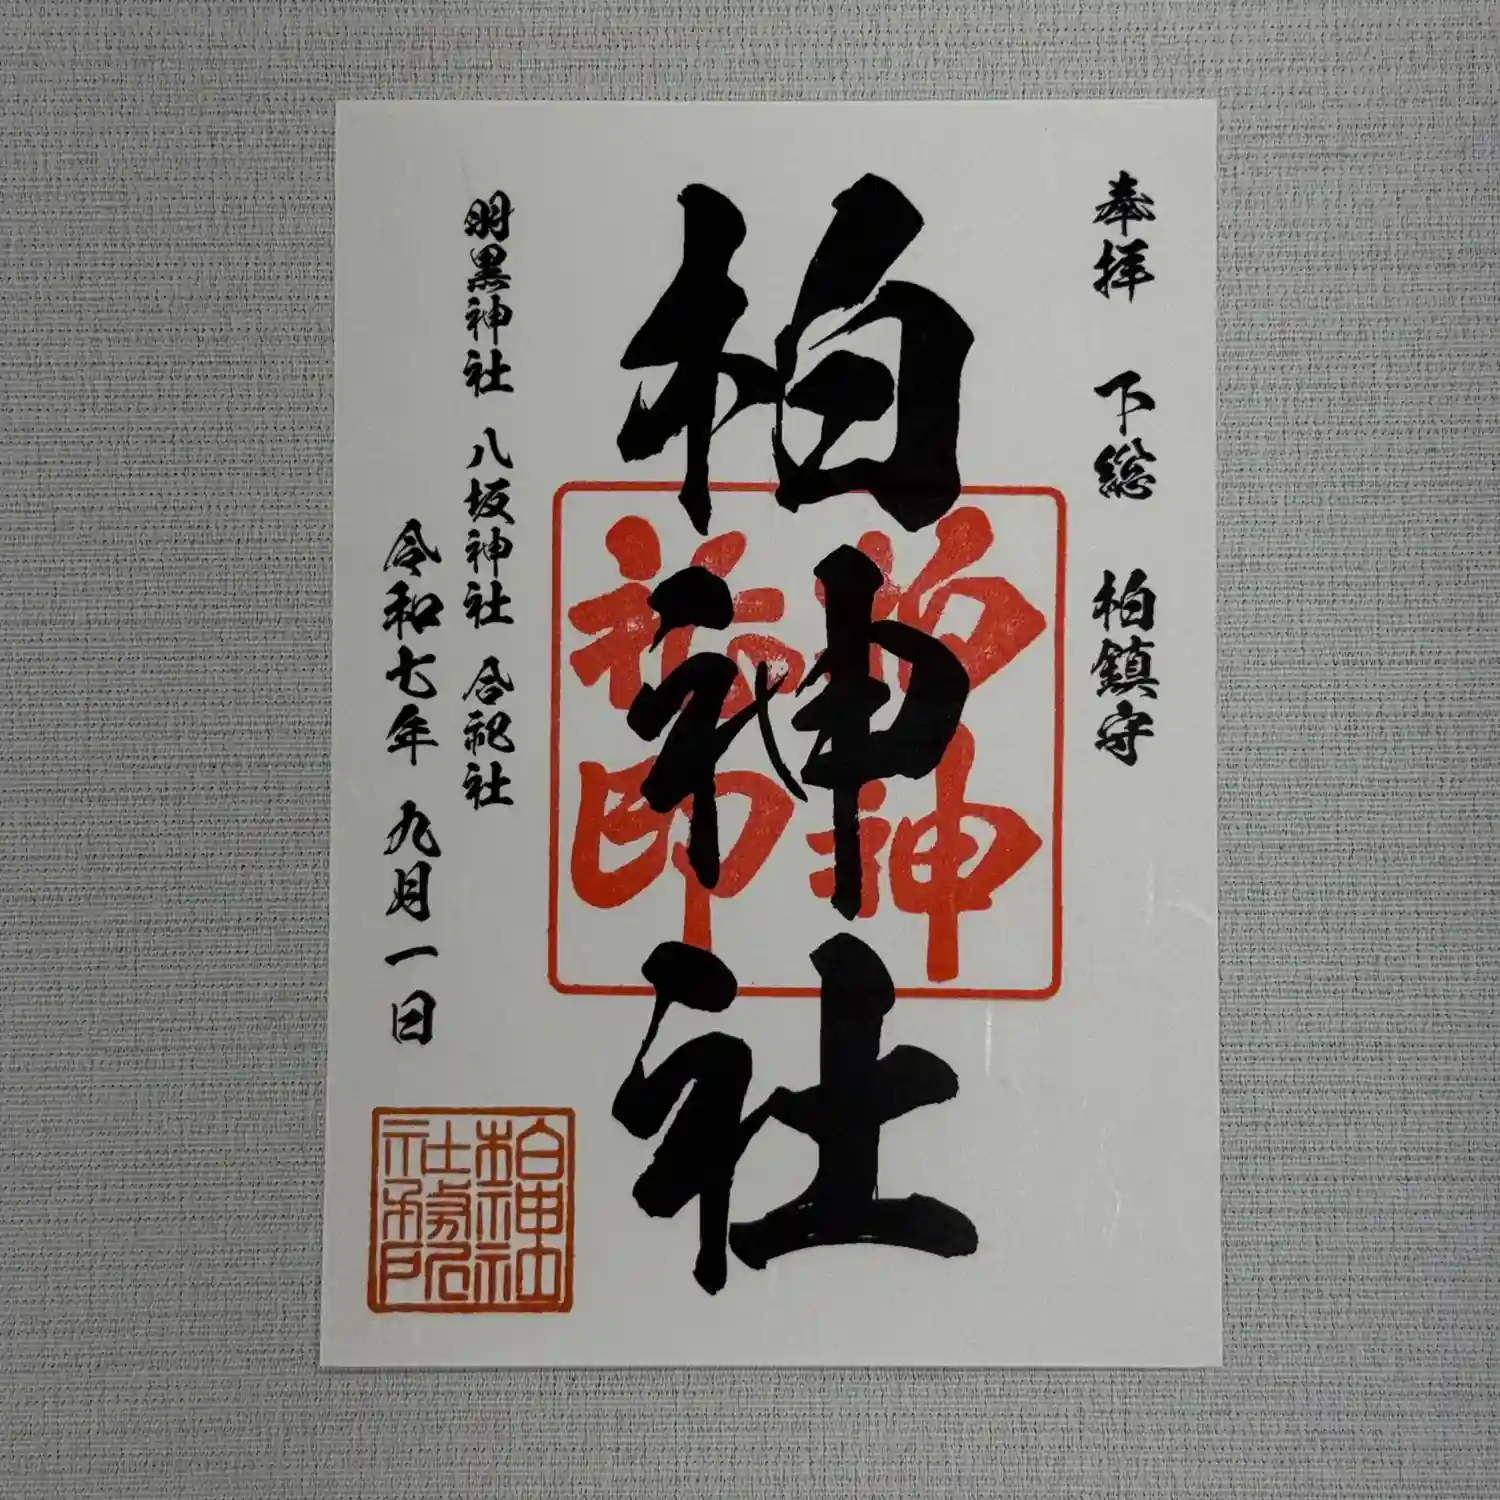 奉拝 下総 柏鎮守
柏神社
柏神
社印
羽黒神社 八坂神社 合祀社
令和七年 九月一日
柏神社
社務所